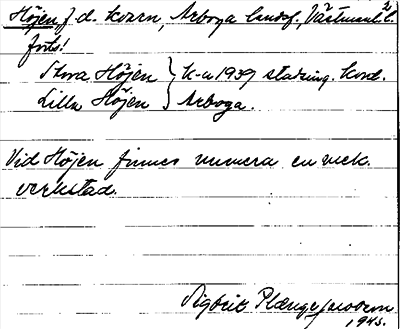 Höjen, f. d. kvarn, Arboga landsf., Västmanl. l.
forts!
Stora Höjen } K-a 1939 stadsing. kond.
Lilla Höjen } Arboga.
Vid Höjen finnes numera en mek.
verkstad.
Sigbrit Plænge Jacobson
1945.